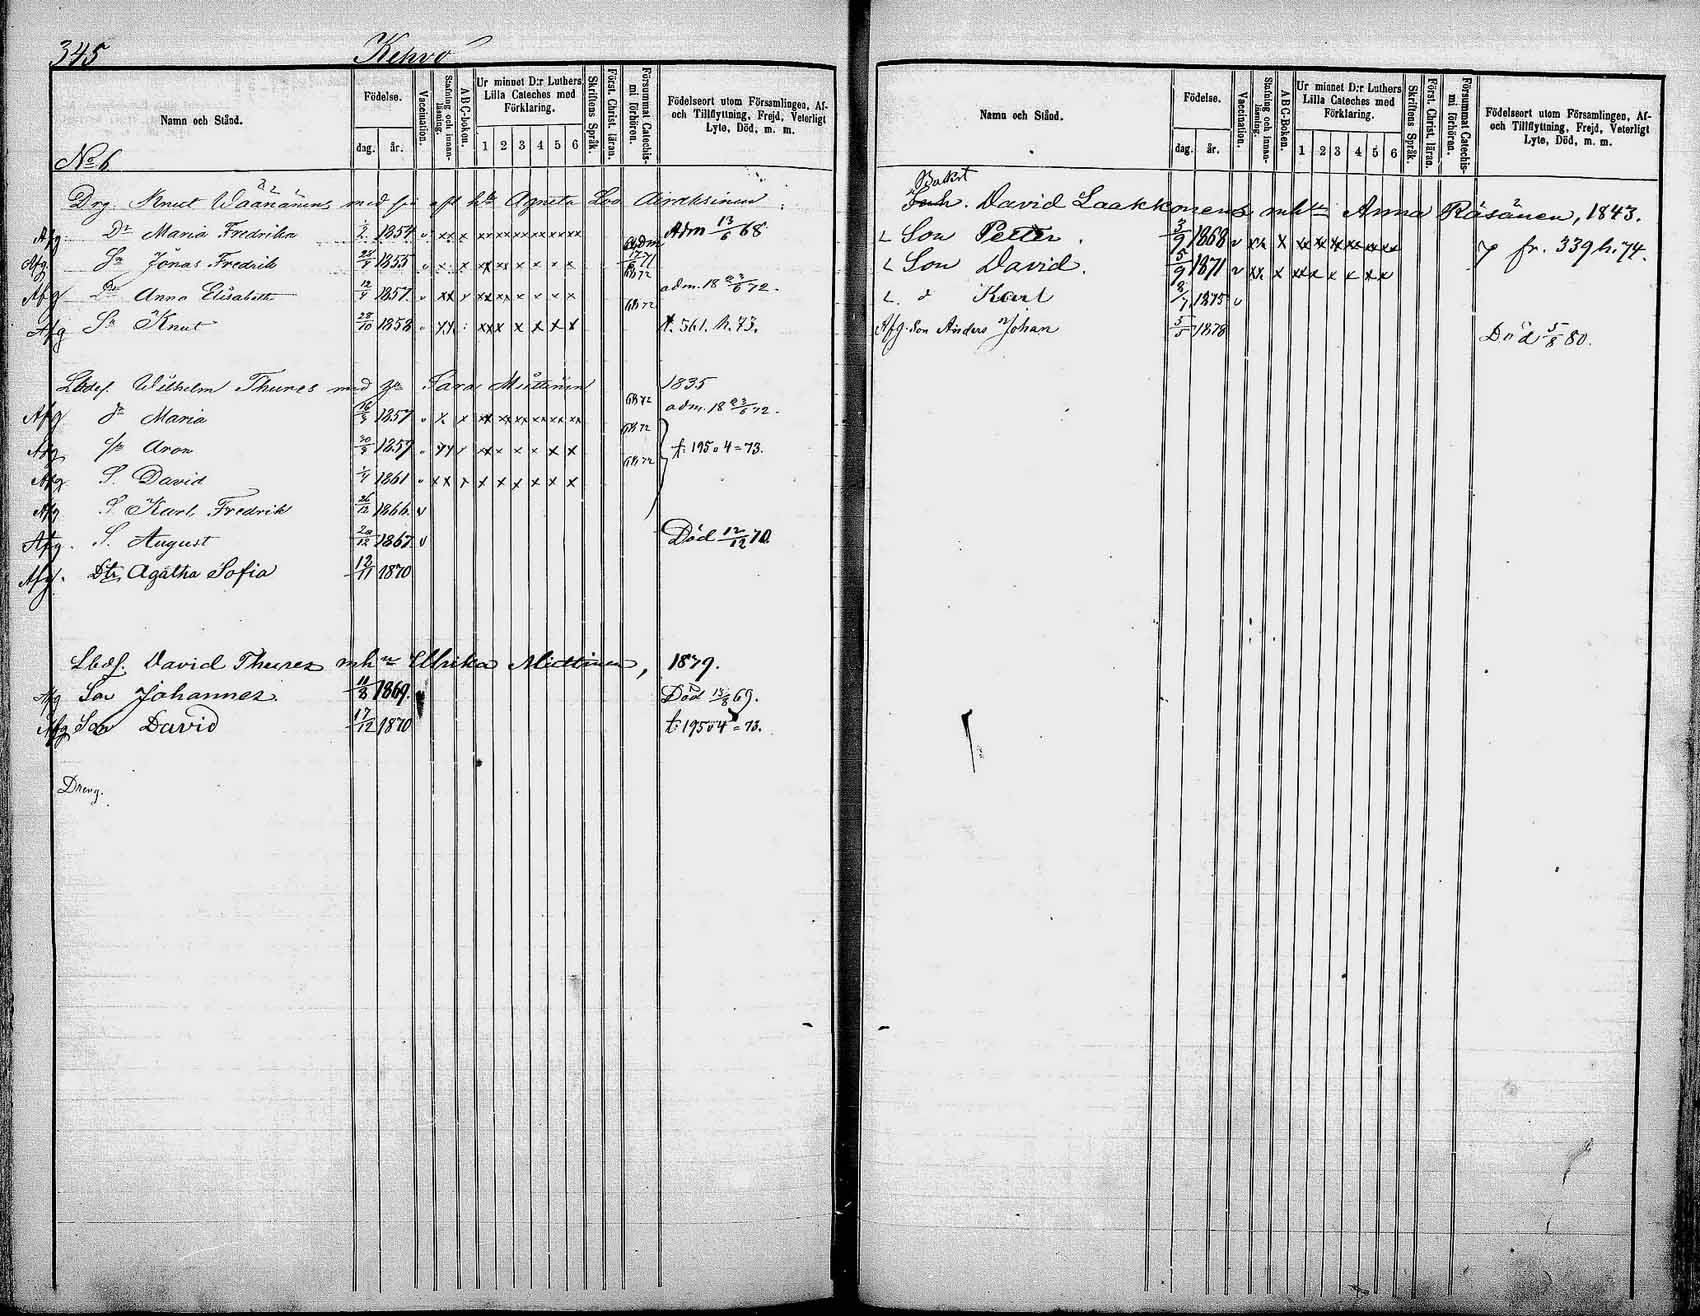 345 Kehvo
Namn och Stånd. Födelse. dag. år. Vaccination. Stafning och innanläsning. ABC-boken. Ur minnet D:r Luthers Lilla Cateches med Förklaring. 1 2 3 4 5 6 Skriftens Språk. Först. Christ. läran. Försummat Catechismi förhören. Födelseort utom Församlingen, Af- och Tillflyttning, Frejd, Veterligt Lyte, Död, m. m.
No 6
Drg. Knut Wäänänens med Agneta Airaksinen
Afg Dr Maria Fredrika 1854 Adm 13/6 68
Afg. Sn Jonas Fredrik 1855
Afg Dr Anna Elisabeth 12/4 1857 68 72 adm. 18 23/6 72.
Afg Sn Knut 28/10 1858 68 72 t. 561. h. 73.
Lbdf. Wilhelm Thures med Sara Miettinen 1835
Afg Dr Maria 1857 68 72 adm. 18 23/6 72.
Afg Sn Aron 1857 68 72 t. 195 o 4 = 73.
Afg S. David 1861 68 72
Afg S Karl Fredrik 26/12 1866
Afg. S. August 20/12 1867 Död 12/12 70
Afg. Dtr. Agatha Sofia 12/11 1870
Lbdf. David Thures mh Ulrika Miettinen, 1879.
Afg Son Johannes. 11/8 1869 Död 13/8 69.
Afg Son David 17/12 1870 t. 195 o 4 = 73.
Dreng.
Namn och Stånd. Födelse. dag. år. Vaccination. Stafning och innanläsning. ABC-Boken. Ur minnet D:r Luthers Lilla Cateches med Förklaring. 1 2 3 4 5 6 Skriftens Språk. Först. Christ. läran. Försummat Catechismi förhören. Födelseort utom Församlingen, Af- och Tillflyttning, Frejd, Veterligt Lyte, Död, m. m.
Inh. David Laakkonens mh Anna Räsänen, 1843.
L Son Petter. 3/9 1868 fr. 339 h. 74.
L Son David. 5/9 1871
L. d Karl 1875
Afg. Son Anders Johan 5/5 1878 Död 5/8 80.